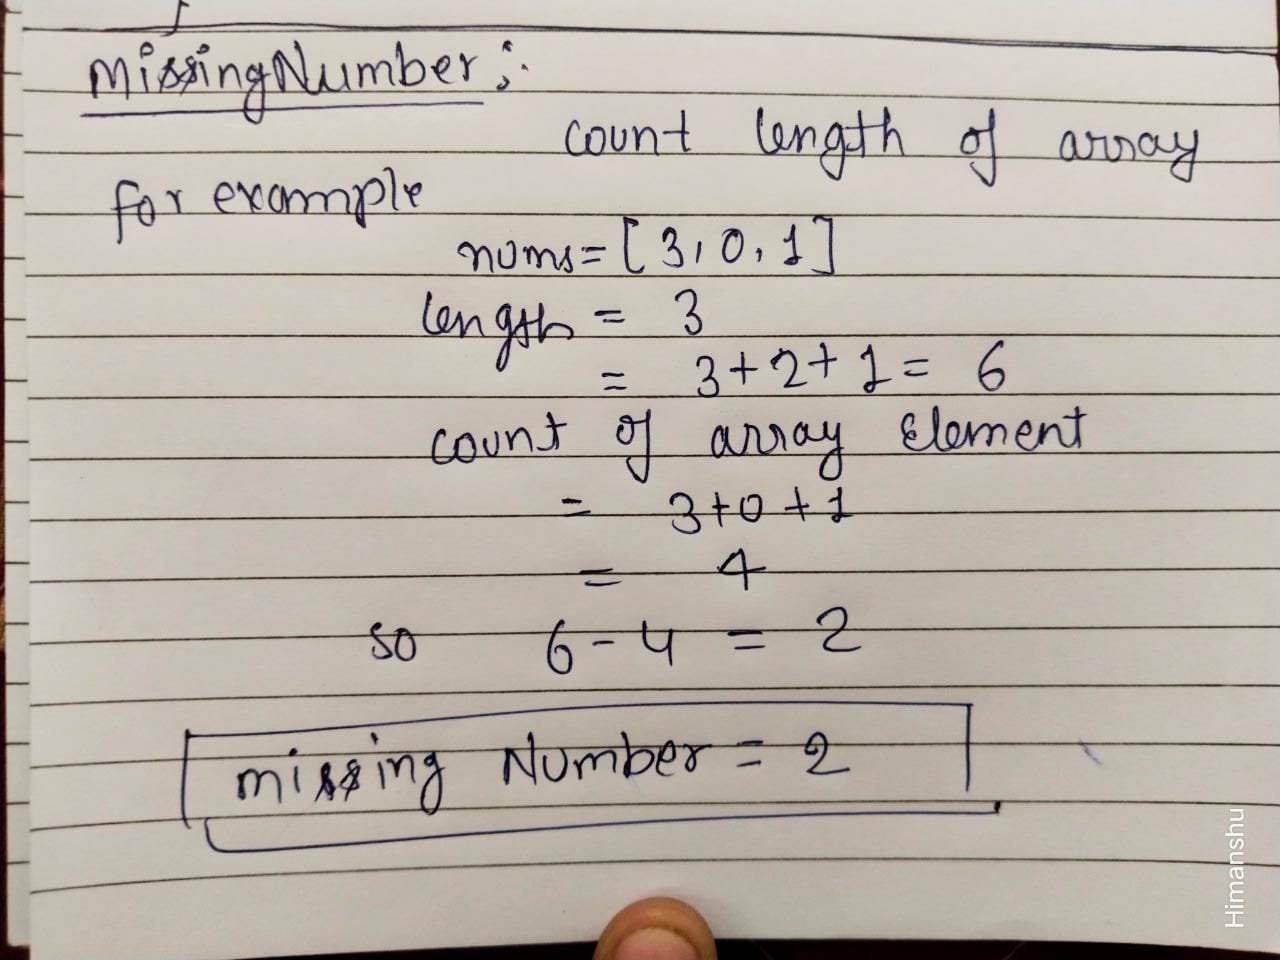 MissingNumber :
count length of array
for example
nums = [3, 0, 1]
length = 3
= 3+2+1 = 6
count of array Element
= 3+0+1
= 4
so 6-4 = 2
missing Number = 2
Himanshu